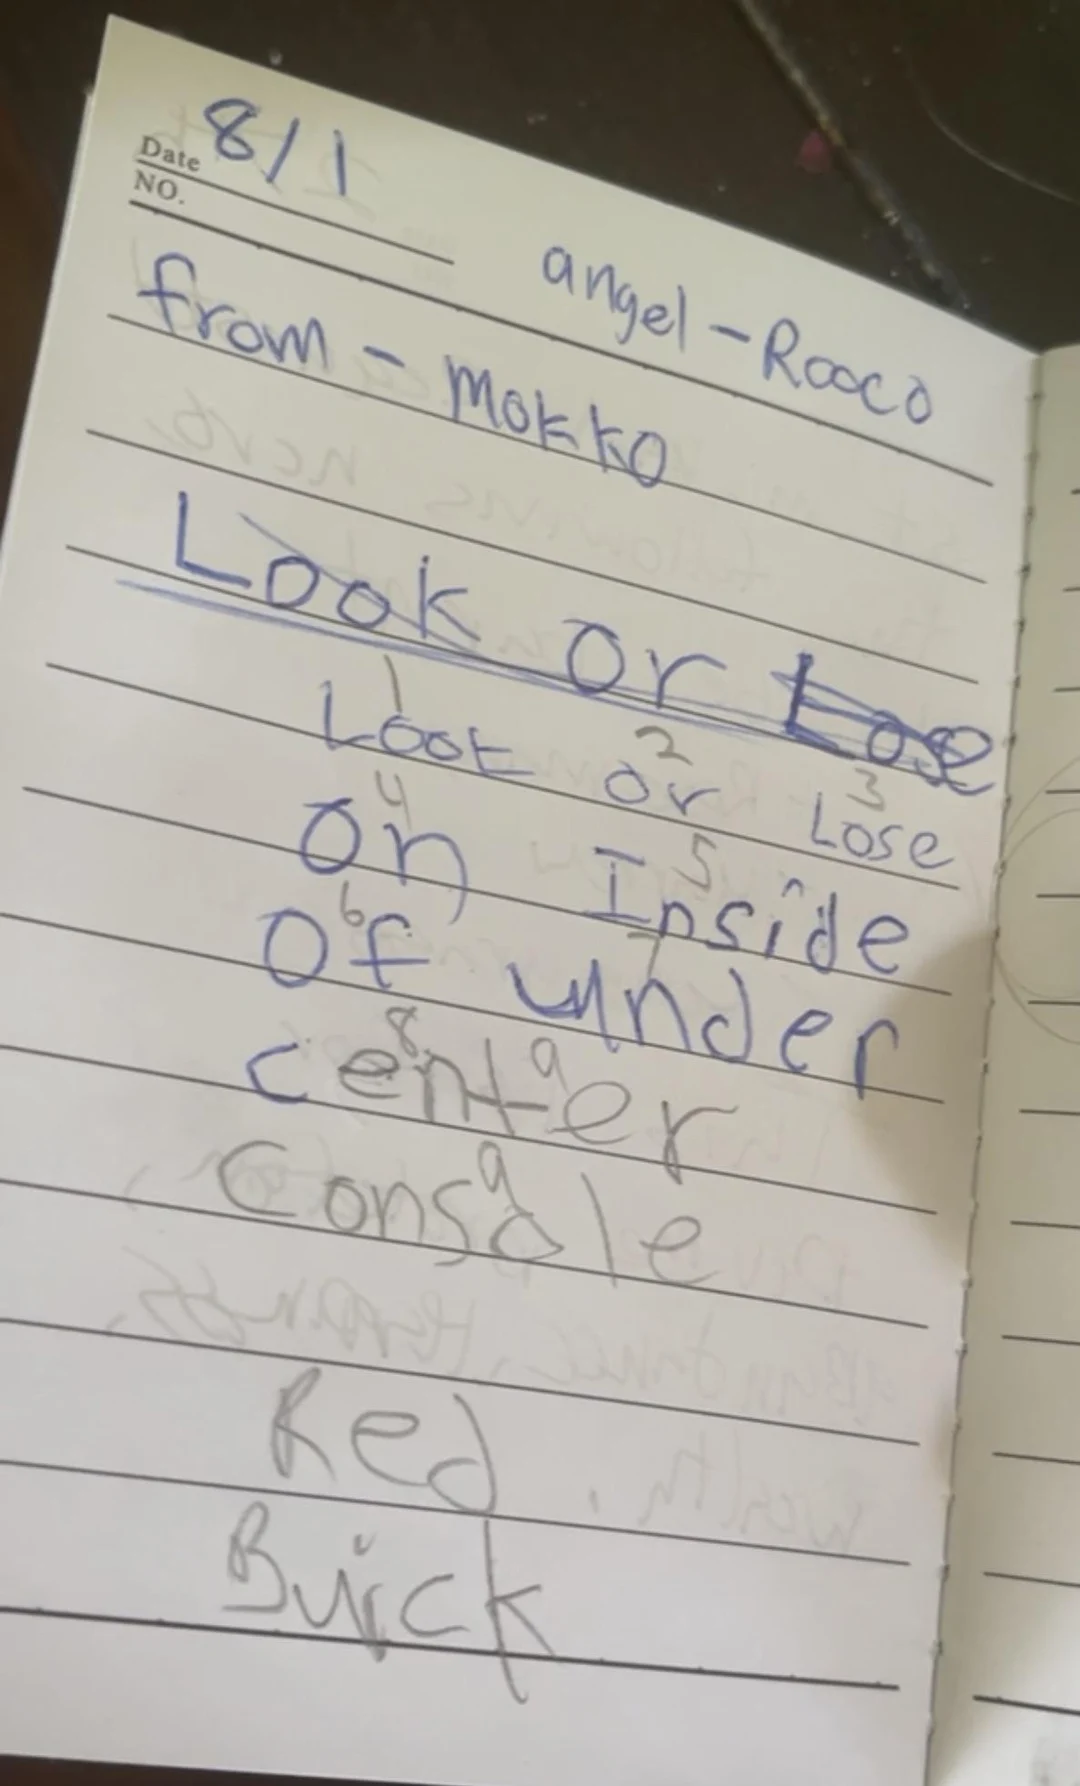 Date 8/1
NO.
angel - Rooco
from - Mokko
Look or Lose
1 2 3
Look or Lose
4 5
On Inside
6 7
Of under
8 9
center
9
Console
Red
Buick